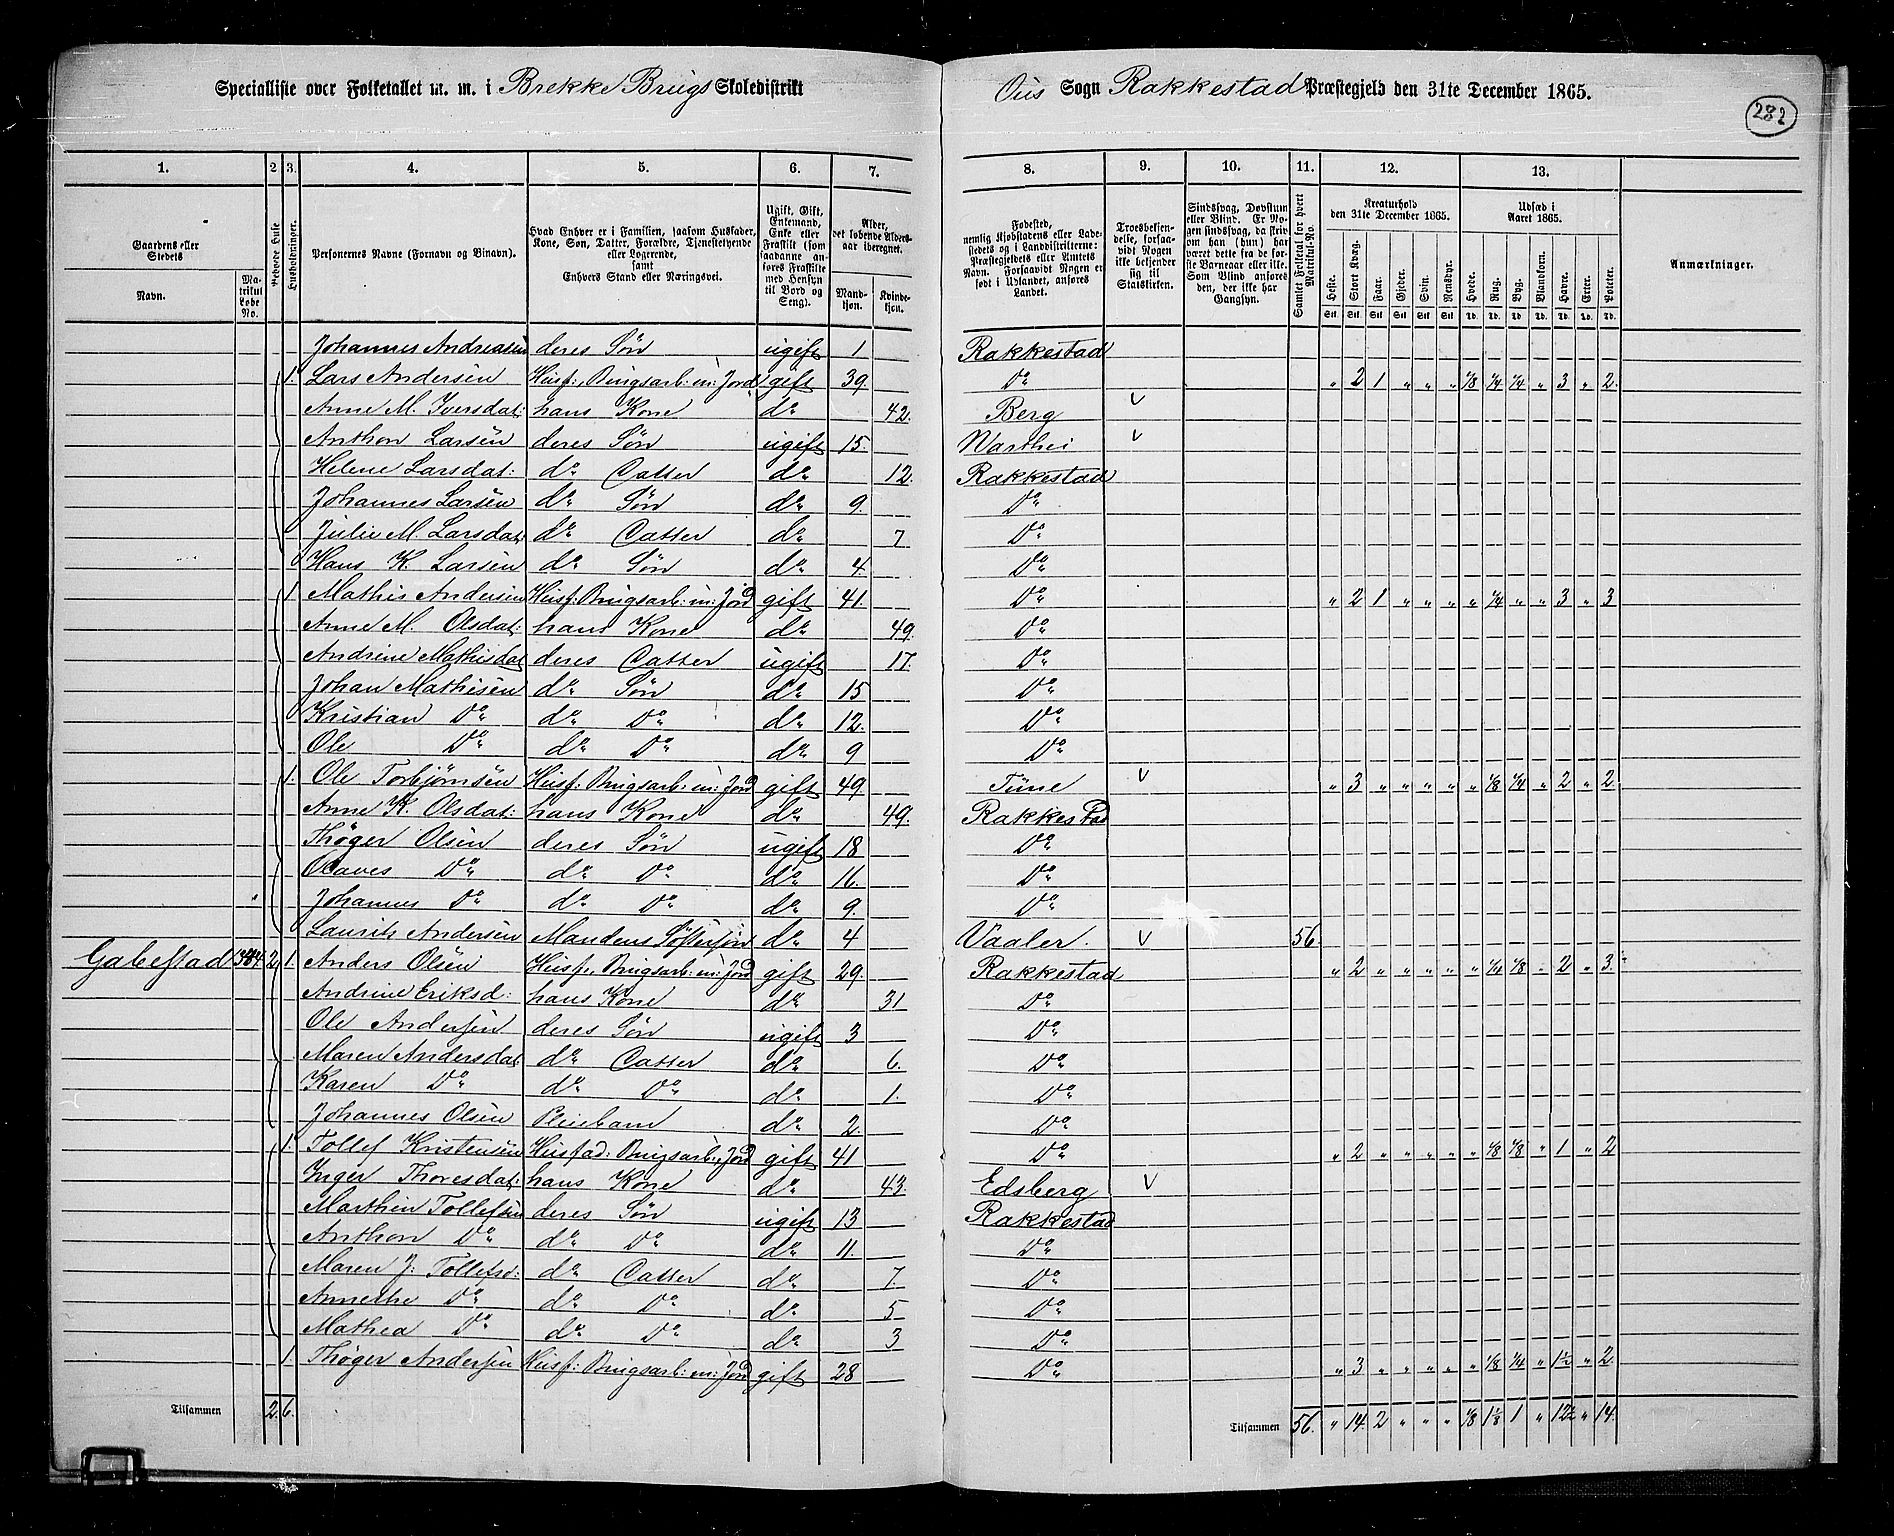 Specialliste over Folketallet m. m. i Brekke Brugs Skoledistrikt Øus Sogn Rakkestad Præstegjeld den 31te December 1865.
282
1. 2. 3. 4. 5. 6. 7. 8. 9. 10. 11. 12. 13.
Gaardens eller Stedets Navn. Matrikul Løbe No. Beboede Huse Husholdninger. Personernes Navne (Fornavn og Binavn). Hvad Enhver er i Familien, saasom Husfader, Kone, Søn, Datter, Forældre, Tjenestetyende eller Logerende, samt Enhvers Stand eller Næringsvei. Ugift, Gift, Enkemand, Enke eller Fraskilt (som saadanne anføres Fraskilte med Hensyn til Bord og Seng). Alder, det løbende Aldersaar iberegnet. Mandkjøn. Kvindekjøn. Fødested, nemlig Kjøbstadens eller Ladestedets og i Landdistrikterne: Præstegjeldets eller Amtets Navn. Forsaavidt Nogen er født i Udlandet, anføres Landet. Troesbekjendelse, forsaavidt Nogen ikke bekjender sig til Statskirken. Sindssvag, Døvstum eller Blind. Er Nogen sindssvag, da skriv om han (hun) har været dette fra de første Barneaar eller ikke. Som Blind anføres den, der ikke har Gangsyn. Samlet Folketal for hvert Matrikul-No. Kreaturhold den 31te December 1865. Udsæd i Aaret 1865. Anmærkninger.
Heste. Stort Kvæg. Faar. Gjeder. Svin. Rensdyr. Hvede. Rug. Byg. Blandkorn. Havre. Erter. Poteter.
Stk Stk Stk Stk Stk Stk Td. Td. Td. Td. Td. Td. Td.
Johannes Andreasen deres Søn ugift 1 Rakkestad
1. Lars Andersen Husf: Brugsarb: m: Jord gift 39. Do " 2 1 " " " 1/8 1/4 1/4 " 3 " 2.
Anne M. Iversdat: hans Kone do 42. Berg v
Anthon Larsen deres Søn ugift 15. v
Helene Larsdat: do Datter do 12. Rakkestad
Johannes Larsen do Søn do 9. Do
Julie M. Larsdat: do Datter do 7 Do
Hans K. Larsen do Søn do 4. Do
1. Mathis Andersen Husf: Brugsarb: m: Jord gift 41. Do " 2 1 " " " " 1/4 " " 3 " 3
Anne M. Olsdat: hans Kone do 49. Do
Andrine Mathisdat deres Datter ugift 17. Do
Johan Mathisen do Søn do 15 Do
Kristian Do do Do do 12. Do
Ole Do do Do do 9 Do
1. Ole Torbjørnsen Husf: Brugsarb: m: Jord gift 49 Tune v " 3 " " " " " 1/8 1/4 " 2 " 2.
Anne K. Olsdat: hans Kone do 49. Rakkestad
Thøger Olsen deres Søn ugift 18 Do
Olaves Do do Do do 16. Do
Johannes Do do Do do 9. Do
Laurits Andersen Mandens Søstersøn do 4 Vaaler. v 56.
Gabestad 384. 2. 1. Anders Olsen Husf: Brugsarb: m: Jord gift 29. Rakkestad " 2 " " " " " 1/4 1/8 " 2 " 3.
Andrine Eriksd: hans Kone do 31 Do
Ole Andersen deres Søn ugift 3 Do
Maren Andersdat do Datter do 6. Do
Karen Do do Do do 1. Do
Johannes Olsen Pleiebarn do 2. Do
1. Tollef Kristensen Husfad: Brugsarb: Jord gift 41 Do " 2 " " " " " 1/8 1/8 " 1 " 2
Inger Thoresdat: hans Kone do 43. Edsberg v
Marthin Tollefsen deres Søn ugift 13 Rakkestad
Anthon Do do Do do 11. Do
Maren J. Tollefsd: do Datter do 7. Do
Annethe Do do Do do 5 Do
Mathea Do do Do do 3 Do
1. Thøger Andersen Husf: Brugsarb: m: Jord gift 28 Do " 3 " " " " " 1/8 1/4 " 1½ " 2.
Tilsammen 2. 6. Tilsammen 56. " 14. 2 " " " 1/8 1 " 12½ " 14.